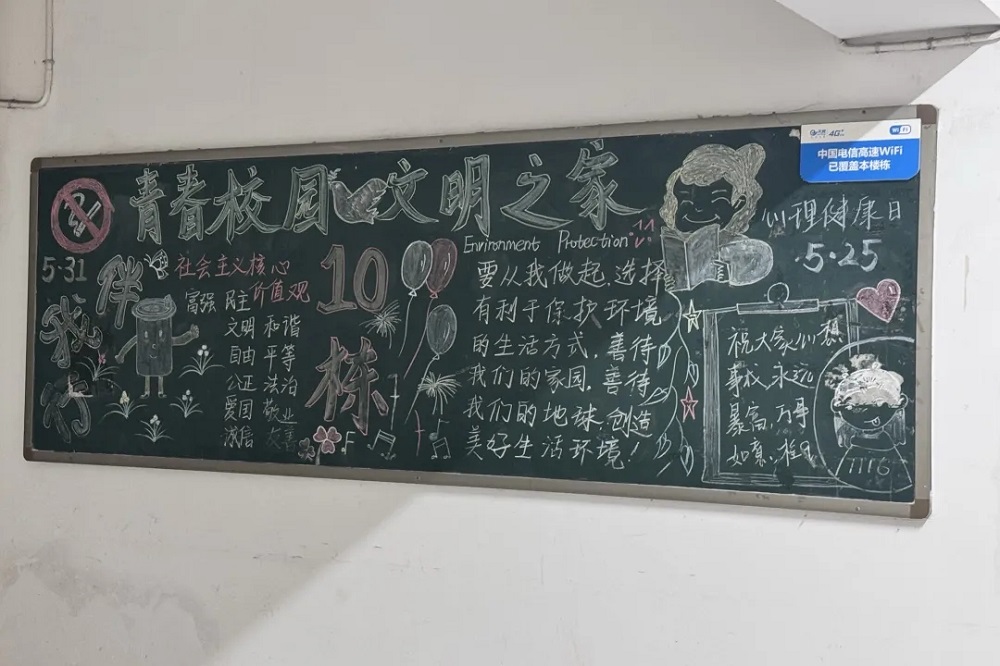 4G
WiFi
中国电信高速WiFi
已覆盖本楼栋
青春校园文明之家
5·31
伴我行
社会主义核心
价值观
富强 民主
文明 和谐
自由 平等
公正 法治
爱国 敬业
诚信 友善
10栋
Environment Protection
要从我做起,选择
有利于保护环境
的生活方式,善待
我们的家园,善待
我们的地球,创造
美好生活环境!
心理健康日
·5·25
祝大家心想
事成,永远
暴富,万事
如意,
1116